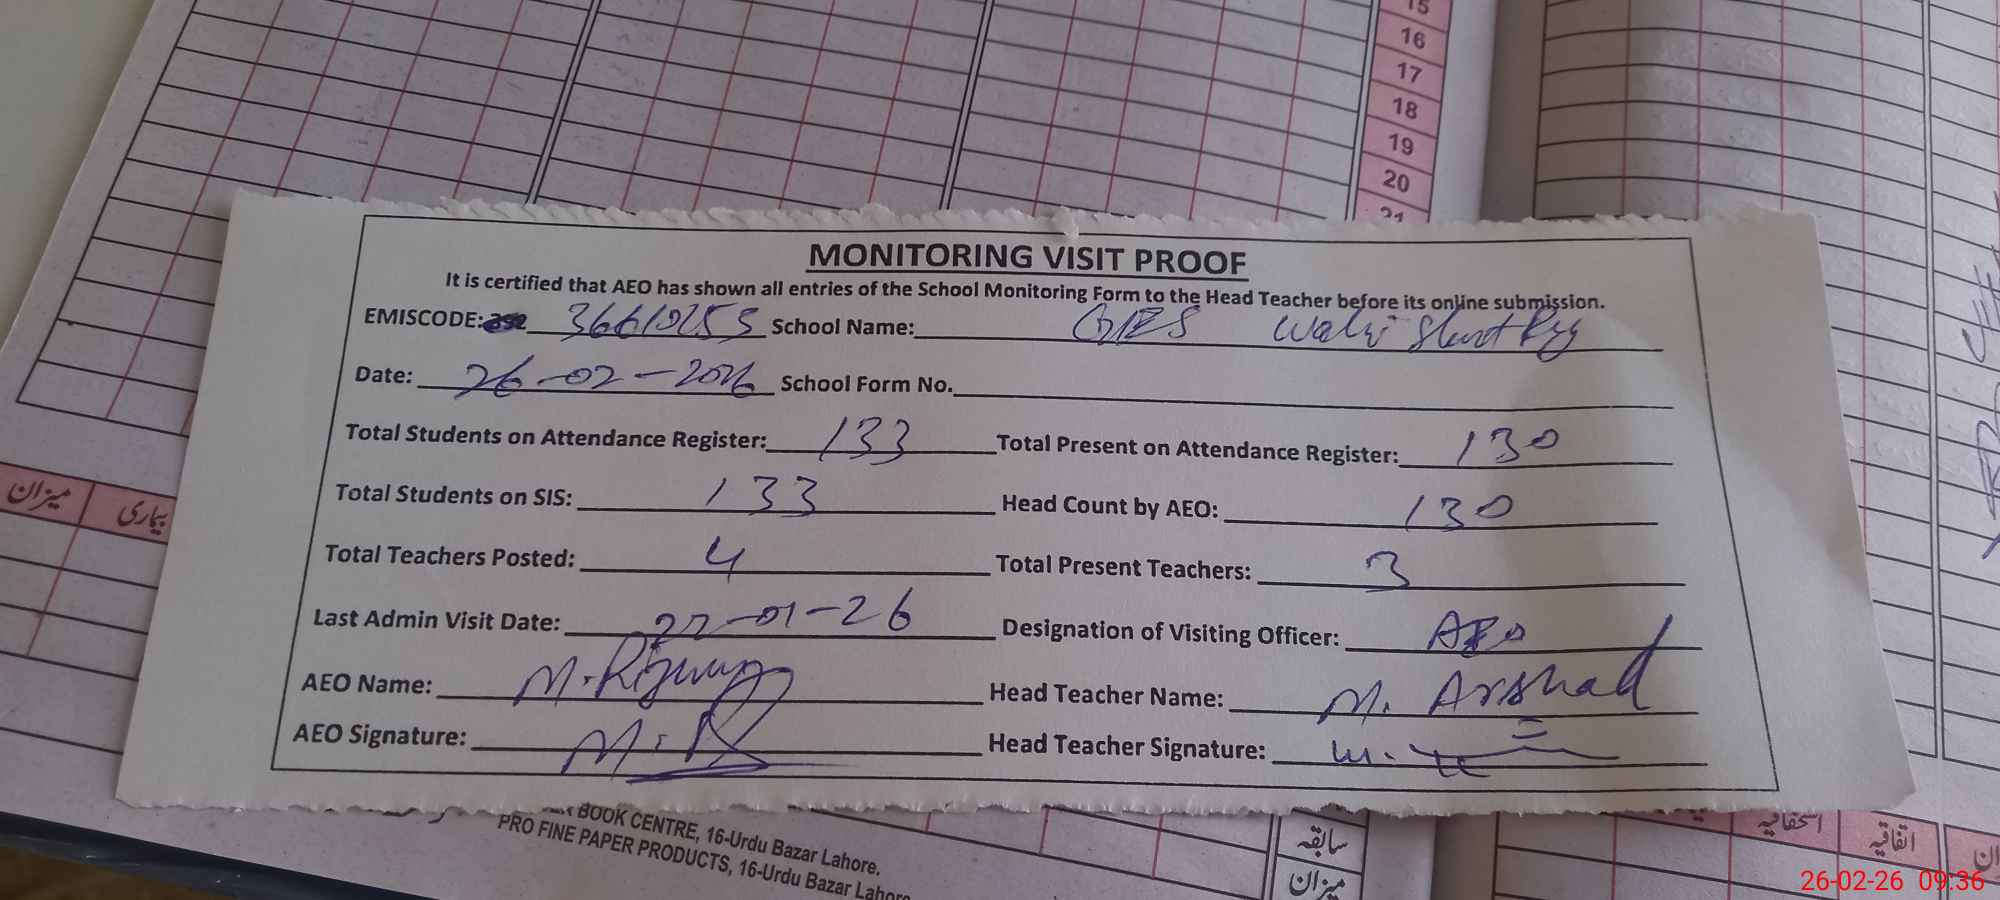 15
16
17
18
19
20
21
MONITORING VISIT PROOF
It is certified that AEO has shown all entries of the School Monitoring Form to the Head Teacher before its online submission.
EMISCODE: 36610253 School Name:
Date: 26-02-2026 School Form No.
Total Students on Attendance Register: 133 Total Present on Attendance Register: 130
Total Students on SIS: 133 Head Count by AEO: 130
Total Teachers Posted: 4 Total Present Teachers: 3
Last Admin Visit Date: 27-01-26 Designation of Visiting Officer: AEO
AEO Name: M. Head Teacher Name: M. Arshad
AEO Signature: M. Head Teacher Signature:
میزان بیماری
BOOK CENTRE, 16-Urdu Bazar Lahore.
PRO FINE PAPER PRODUCTS, 16-Urdu Bazar Lahore
سابقہ
میزان
اتفاقیہ
26-02-26 09:36